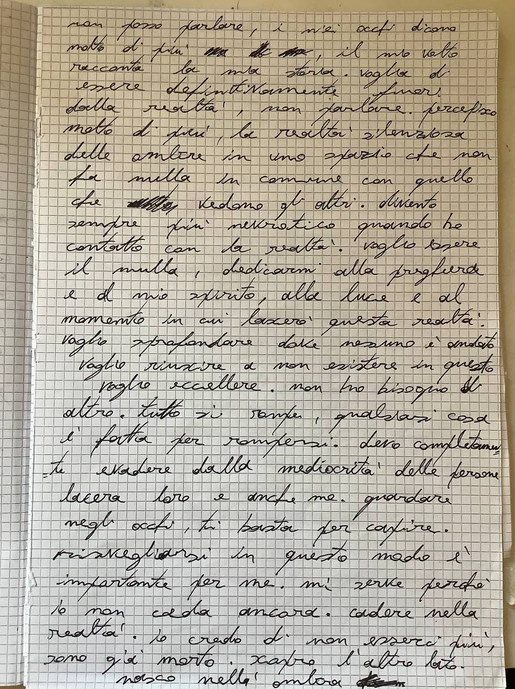 non posso parlare, i miei occhi dicono
molto di più, il mio volto
racconta la mia storia. voglia di
essere definitivamente fuori
dalla realtà, non parlare. percepisco
molto di più, la realtà silenziosa
delle ombre in uno spazio che non
ha nulla in comune con quello
che vedono gli altri. divento
sempre più nevrotico quando ho
contatto con la realtà. voglio essere
il nulla, dedicarmi alla preghiera
e al mio spirito, alla luce e al
momento in cui lascerò questa realtà.
voglio sprofondare dove nessuno è andato
voglio riuscire a non esistere in questo
voglio eccellere. non ho bisogno di
altro. tutto si rompe, qualsiasi cosa
è fatta per rompersi. devo completamen-
te evadere dalla mediocrità delle persone
lacera loro e anche me. guardare
negli occhi, ti basta per capire.
risvegliarsi in questo modo è
importante per me. mi serve perché
io non cada ancora. cadere nella
realtà. io credo di non esserci più,
sono già morto. scopro l'altro lato.
nasco nell'ombra